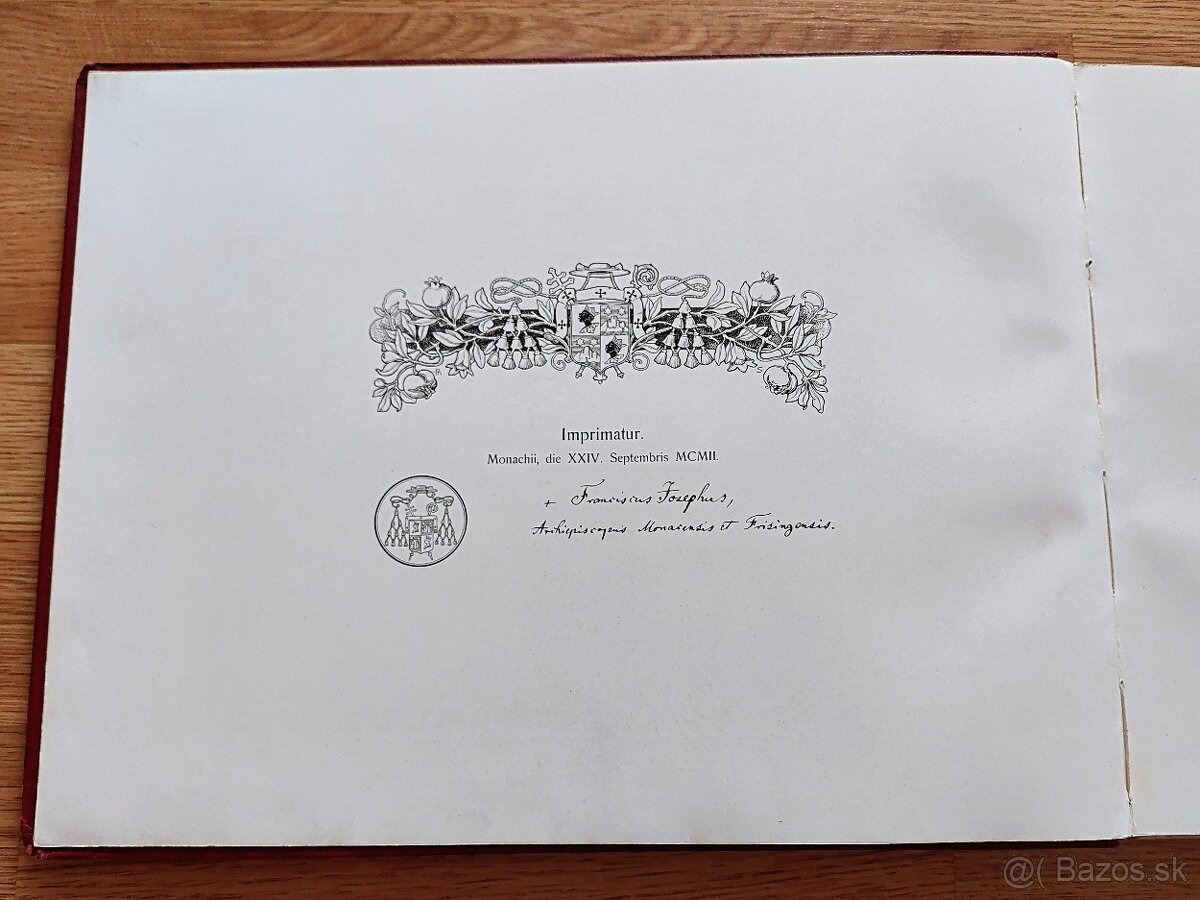 Imprimatur.
Monachii, die XXIV. Septembris MCMII.
+ Franciscus Josephus,
Archiepiscopus Monacensis et Frisingensis.
@( Bazos.sk